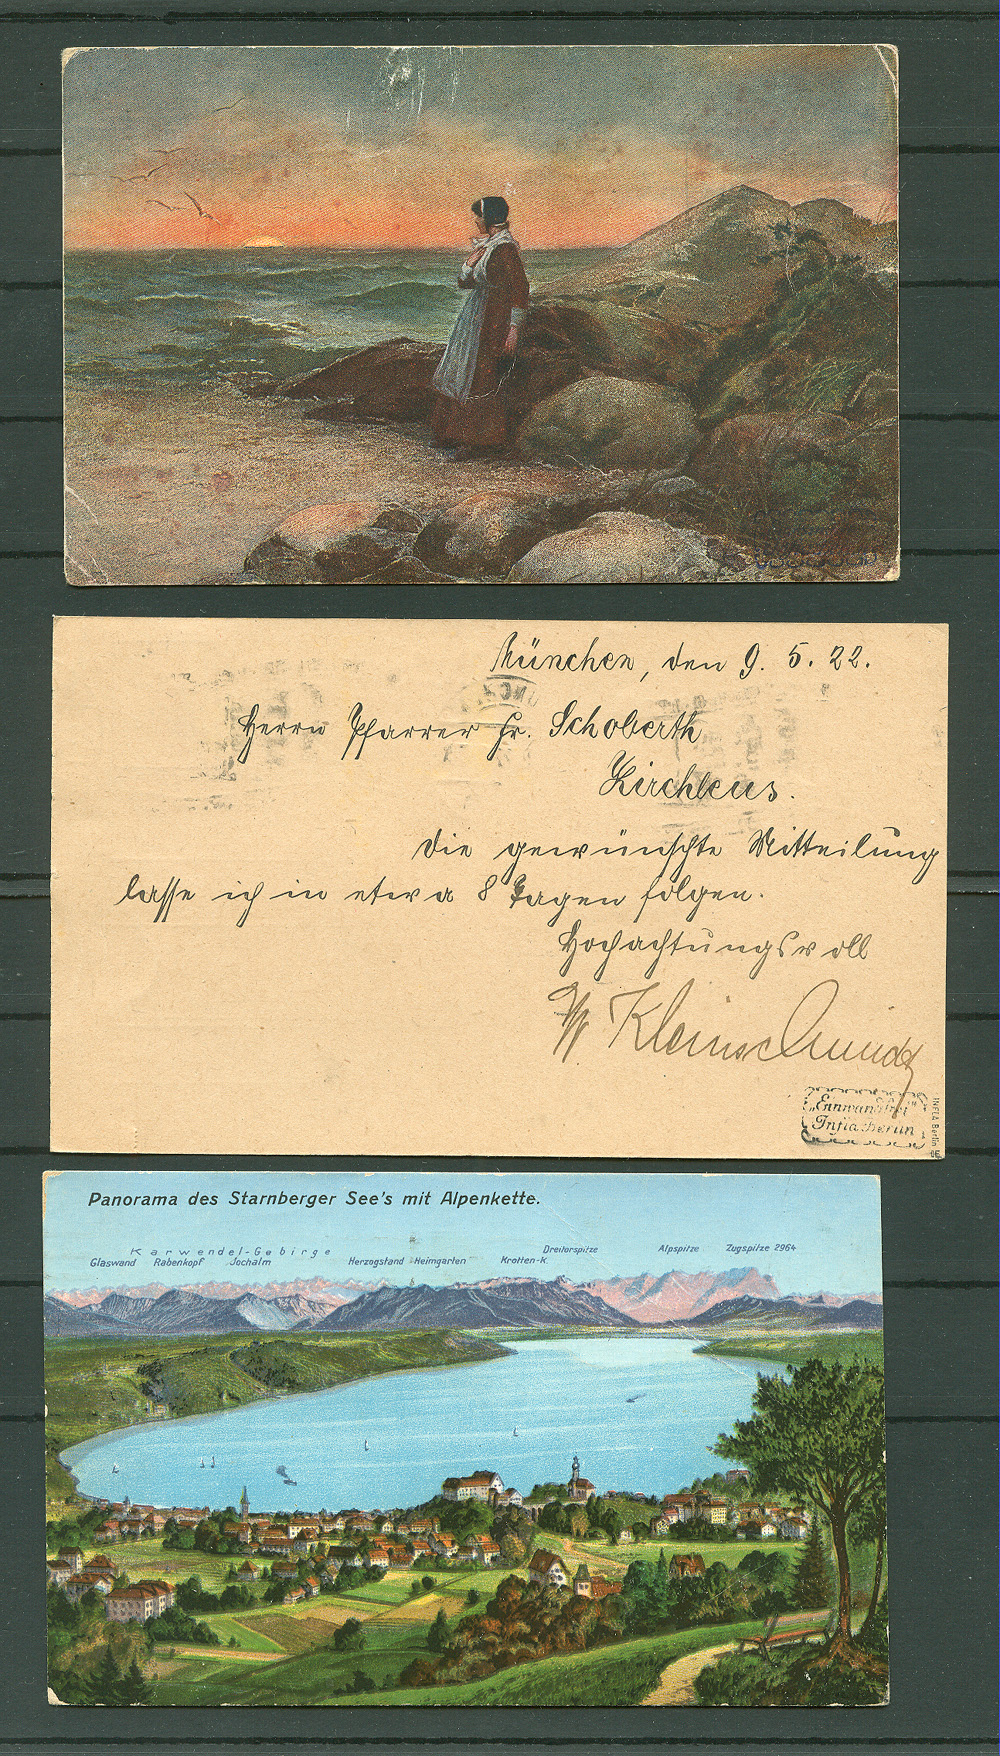 München, den 9. 5. 22.
Herrn Pfarrer Fr. Schoberth
Kirchleus.
Die gewünschte Mitteilung
lasse ich in etwa 8 Tagen folgen.
Hochachtungsvoll
Kleinschmidt
„Einwandfrei“
Infla Berlin
INFLA Berlin
Panorama des Starnberger See's mit Alpenkette.
Karwendel-Gebirge
Dreitorspitze Alpspitze Zugspitze 2964
Glaswand Rabenkopf Jochalm Herzogstand Heimgarten Krotten-K.